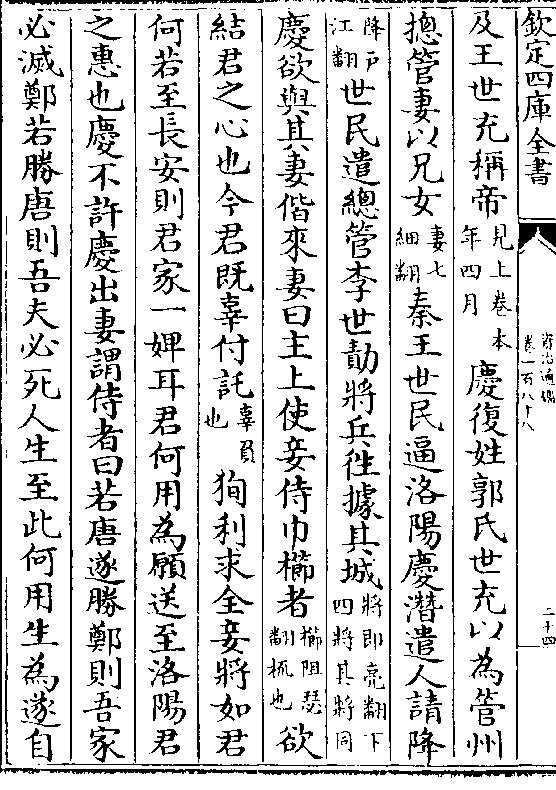 欽定四庫全書
資治通鑑
卷一百八十八
二十四
及王世充稱帝見上卷本年四月慶復姓郭氏世充以為管州
摠管妻以兄女妻七細翻秦王世民逼洛陽慶潛遣人請降
降户江翻世民遣總管李世勣將兵徃據其城將即亮翻下四將其將同
慶欲與其妻偕來妻曰主上使妾侍巾櫛者櫛阻瑟翻梳也欲
結君之心也今君既辜付託辜負也狥利求全妾將如君
何若至長安則君家一婢耳君何用為願送至洛陽君
之惠也慶不許慶出妻謂侍者曰若唐遂勝鄭則吾家
必滅鄭若勝唐則吾夫必死人生至此何用生為遂自